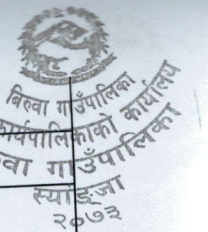 बिरुवा गाउँपालिका
कार्यपालिकाको कार्यालय
वा गाउँपालिका
स्याङ्जा
२०७३